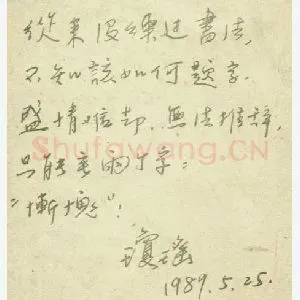 從來沒練过書法,
不知該如何題字.
盛情难却,無法推辞,
只能寫兩个字:
“慚愧”!
瓊瑤
1989.5.25.
Shufawang.CN